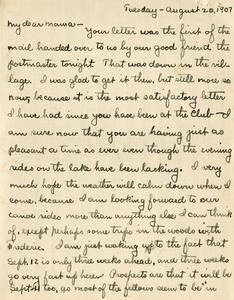 Tuesday - August 20, 1907
My dear mama -
Your letter was the first of the
mail handed over to us by our good friend the
postmaster tonight. That was down in the vil-
lage. I was glad to get it then, but still more so
now, because it is the most satisfactory letter
I have had since you have been at the Club - I
am sure now that you are having just as
pleasant a time as ever even though the evening
rides on the lake have been lacking. I very
much hope the weather will calm down when I
come, because I am looking forward to our
canoe rides more than anything else I can think
of, except perhaps some trips in the woods with
Frederic. I am just waking up to the fact that
Sept. 12 is only three weeks ahead, and three weeks
go very fast up here. Prospects are that it will be
Sept. 11 too, as most of the fellows seem to be "in